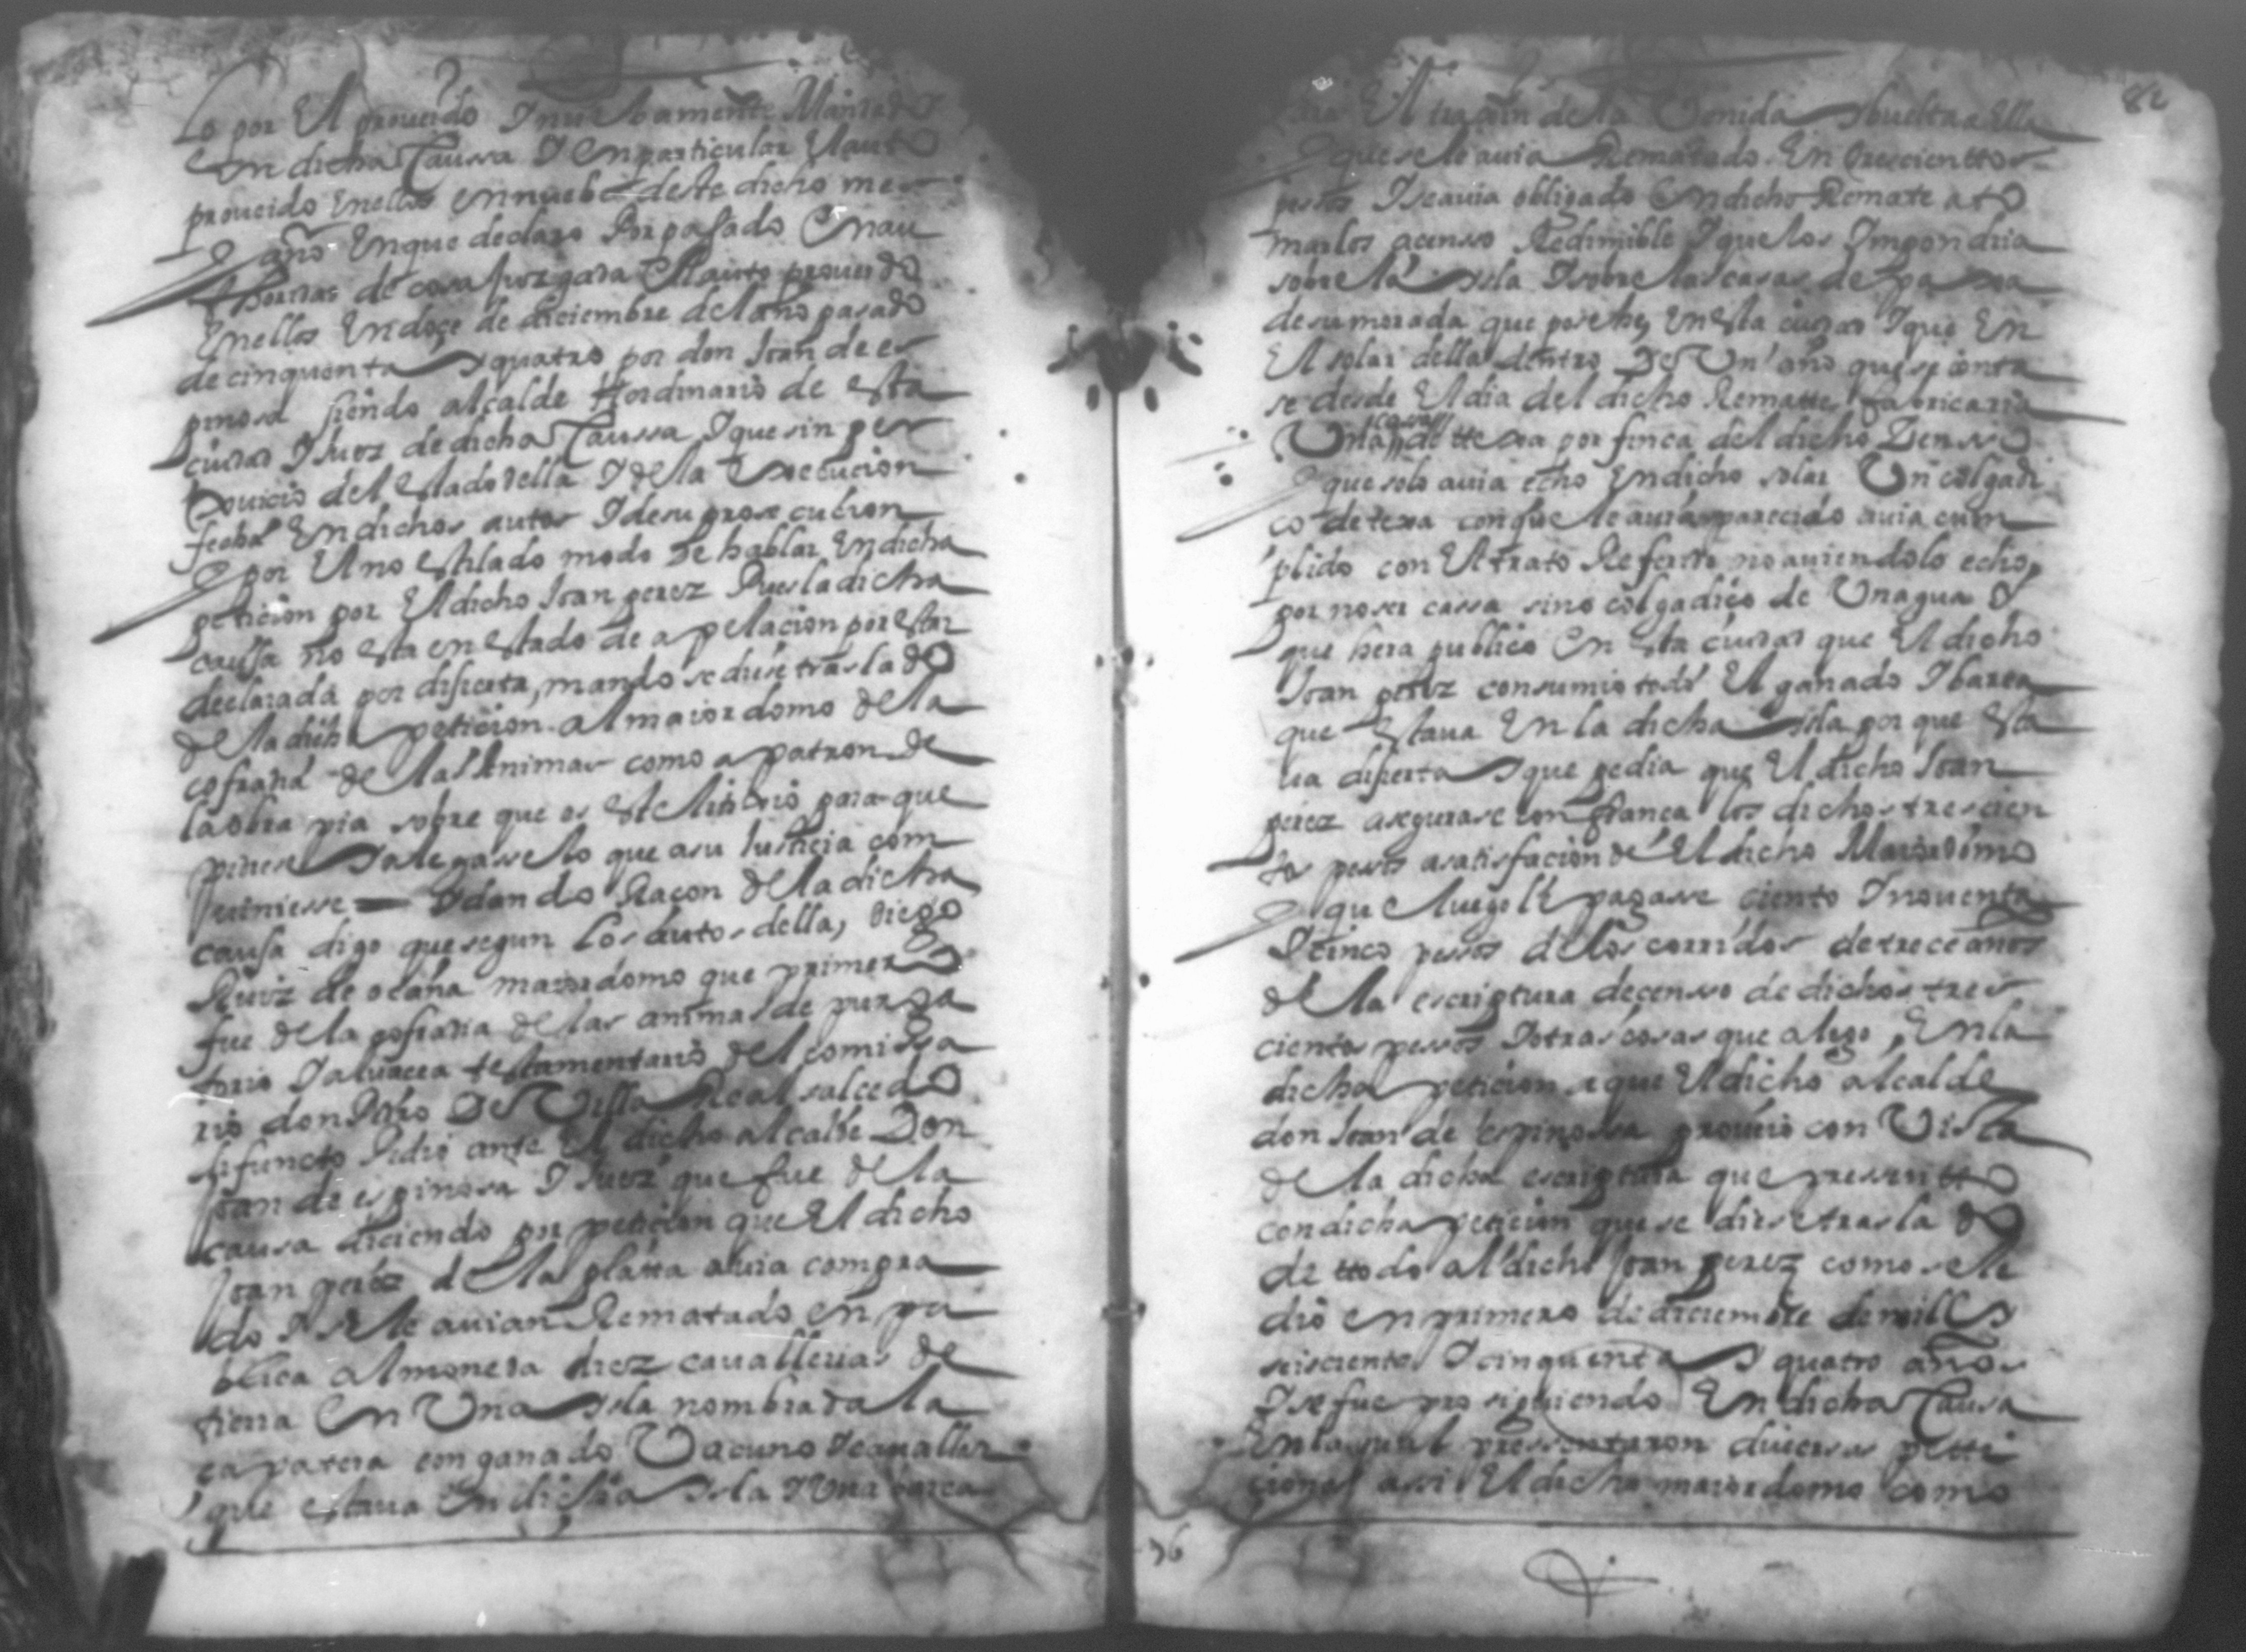 lo por El proueido I nuebamente Mandado
En dicha Caussa I En particular El auto
proueido Enellos en nuebe deste dicho mes
I año En que declaro Por pasado En au
thoridad de cosa Juzgada El auto proueido
Enellos En doçe de diciembre del año pasado
de cinquenta I quatro por don Joan de es
pinosa siendo alcalde Hordinario de esta
ciudad I Juez de dicha Caussa I que sin per
Jouicio del Estado della I de la Execucion
fecha En dichos autos I de su prosecucion
I por El no Estilado modo de hablar En dicha
peticion por El dicho Joan perez Pues la dicha
caussa no esta en Estado de apelacion por estar
declarada por disierta, mando se diese traslado
de la dicha peticion al maiordomo de la
cofradia de las Animas como a patron de
la obra pia sobre que es Este litixio para que
pidiese I alegasse lo que a su Justicia com
biniesse — I dando Raçon de la dicha
causa digo que segun los autos della, diego
Ruiz de ocaña maiordomo que primero
fue de la cofradia de las animas de purga
torio I albacea testamentario del comissa
rio don Pedro De Villa Real salcedo
difuncto Pidio ante El dicho alcalde Don
Joan de espinosa I Juez que fue de la
causa diciendo por peticion que El dicho
Joan perez de la plata auia compra
do I se le auian Rematado en pu
blica almoneda diez cauallerias de
tierra En Una Isla nombrada la
capatera con ganado Vacuno I cauallar
que estaua En dicha Isla I Una barca
82
El trajin de la Venida I buelta a Ella
I que se le auia Rematado En trescientos
pesos I se auia obligado En dicho Remate a to
marlos a censso Redimible I que los Impondria
sobre la Isla I sobre las casas de paxa
de su morada que posehe, En Esta ciudad I que En
El solar della dentro De Un año que se conta
se desde El dia del dicho Rematte, fabricaria
Una cassa de ttexa por finca del dicho Zensso
I que solo auia echo En dicho solar Un colgadi
ço de texa con que le auia parecido auia cum
plido con El trato Referido no auiendolo echo,
por no ser cassa sino colgadiço de Un agua I
que hera publico En Esta ciudad que El dicho
Joan perez consumio todo El ganado I barca
que Estaua En la dicha Isla por que Esta
ua disierta I que pedia que El dicho Joan
perez asegurase con fiança los dichos trescien
tos pesos a satisfacion de El dicho Maiordomo
I que luego le pagasse ciento I nouenta
I cinco pesos de los corridos de trece años
de la escriptura de censso de dichos tres
cientos pessos I otras cosas que alego, En la
dicha peticion a que El dicho alcalde
don Joan de espinossa proueio con Vista
de la dicha escriptura que pressentto
con dicha peticion que se diese traslado
de ttodo al dicho Joan perez como se le
dio en primero de diciembre de mill I
seiscientos I cinquenta I quatro años
I se fue prosiguiendo En dicha Causa
En la qual pressentaron diuersas petti
ciones assi El dicho maiordomo como
76